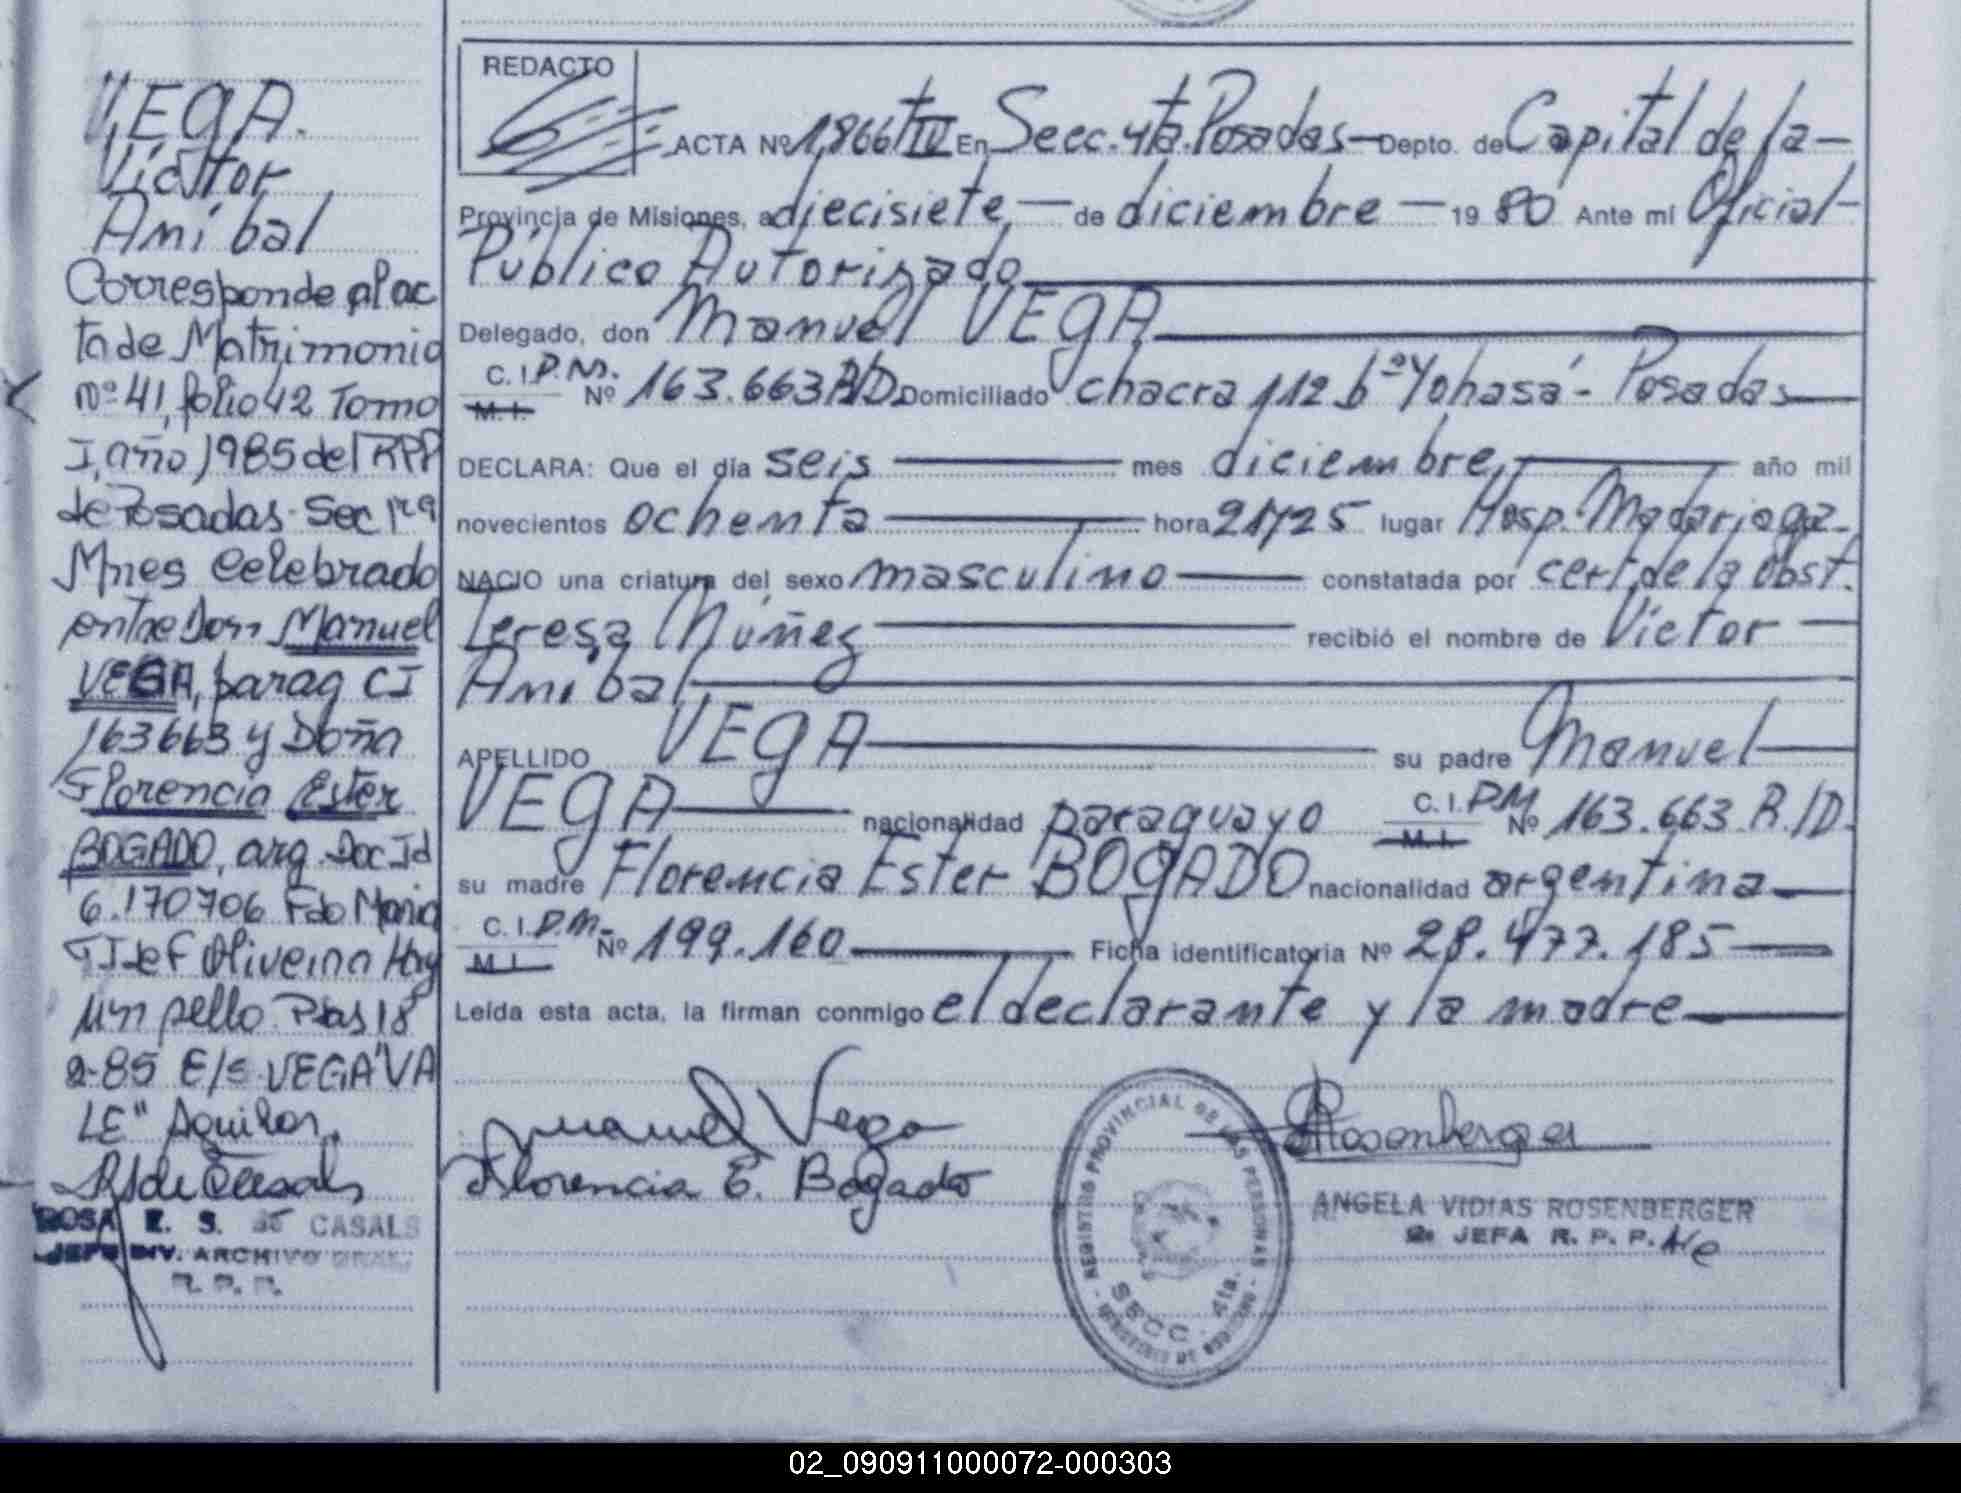 VEGA.
Víctor
Aníbal
Corresponde al ac
ta de Matrimonio
nº 41, folio 42 Tomo
I, año 1985 del RPP
de Posadas-Sec 1ra
Mnes Celebrado
entre Don Manuel
VEGA, parag CI
163663 y Doña
Florencia Ester
BOGADO, arg. Doc Id
6.170706 Fdo María
Oliveira Hay
un sello. Pdas 18
2-85 E/s VEGA "VA
LE" Aguilar
ROSA E. S. de CASALS
JEFE DIV. ARCHIVO GRAL.
R. P. P.
REDACTO
ACTA Nº 1,866 t IV En Secc. 4ta. Posadas— Depto. de Capital de la—
Provincia de Misiones, a diecisiete,— de diciembre— 19 80 Ante mí Oficial—
Público Autorizado
Delegado, don Manuel VEGA
C. I. P.M.
M. I. Nº 163.663 R/D. Domiciliado chacra 112 bº Yohasá- Posadas
DECLARA: Que el día seis mes diciembre, año mil
novecientos ochenta hora 21,25 lugar Hosp. Madariaga-
NACIO una criatura del sexo masculino constatada por cert. de la obst.
Teresa Núñez recibió el nombre de Víctor
Aníbal
APELLIDO VEGA su padre Manuel
VEGA nacionalidad paraguayo C. I. P.M. M. I. Nº 163.663 R./D.
su madre Florencia Ester BOGADO nacionalidad argentina
C. I. P.M.
M. I. Nº 199.160 Ficha identificatoria Nº 28.477.185
Leída esta acta, la firman conmigo el declarante y la madre
Manuel Vega
Florencia E. Bogado
REGISTRO PROVINCIAL DE LAS PERSONAS
SECC. 4ta.
Rosenberger
ANGELA VIDIAS ROSENBERGER
2a JEFA R. P. P.
02_090911000072-000303